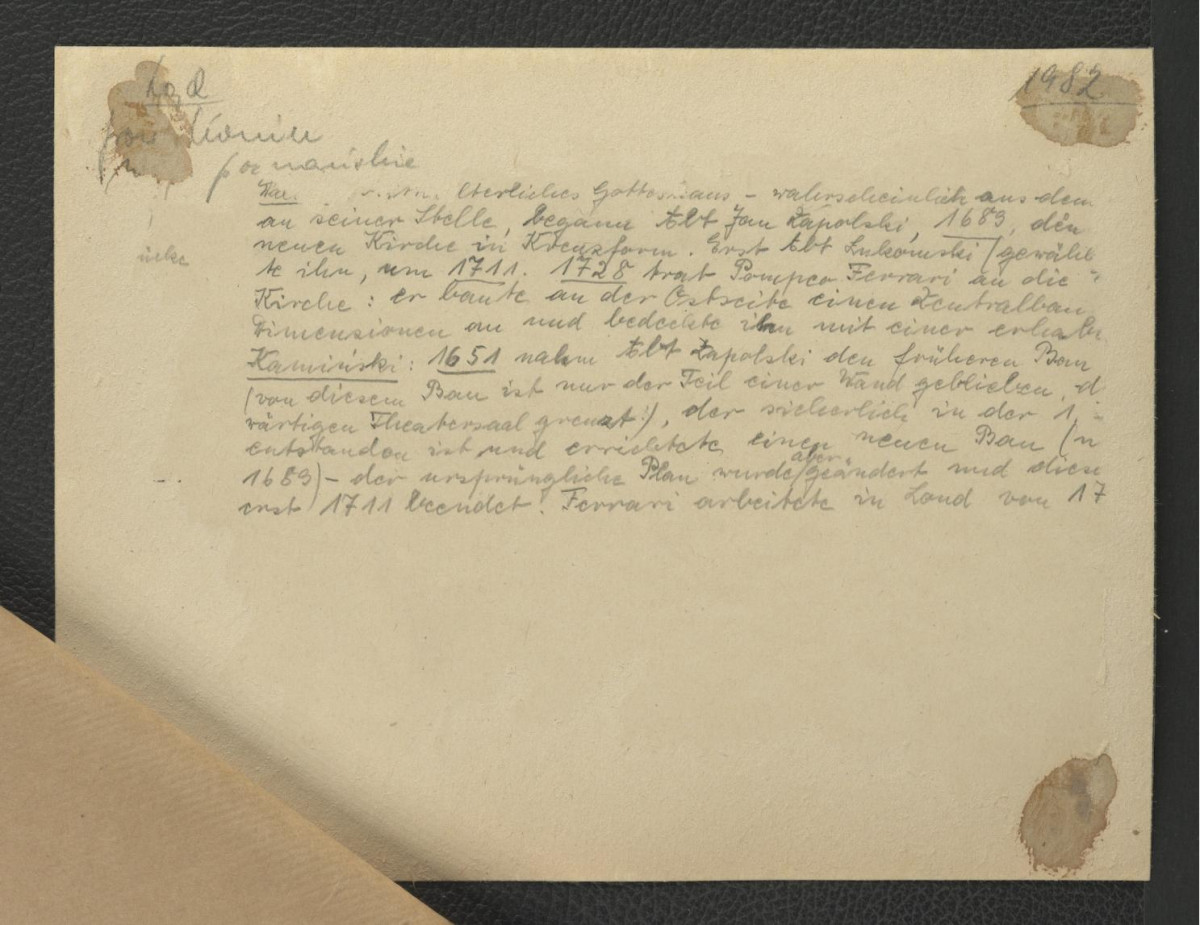 Ląd
1982
pow. Konin
poznańskie
lterliches Gotteshaus - wahrscheinlich aus dem
an seiner Stelle, begann Abt Jan Zapolski, 1689, den
neuen Kirche in Kreuzform. Erst Abt Łukomski (gewähl
te ihn, um 1711. 1728 trat Pompeo Ferrari an die
Kirche: er baute an der Ostseite einen Zentralbau
Dimensionen an und bedeckte ihn mit einer erhabe
Kamiński: 1651 nahm Abt Zapolski den früheren Bau
(von diesem Bau ist nur der Teil einer Wand geblieben, d
wärtigen Theatersaal grenzt!), der sicherlich in der 1.
entstanden ist und errichtete einen neuen Bau (n
1689) - der ursprüngliche Plan wurde aber geändert und diese
erst 1711 beendet. Ferrari arbeitete in Lond von 17